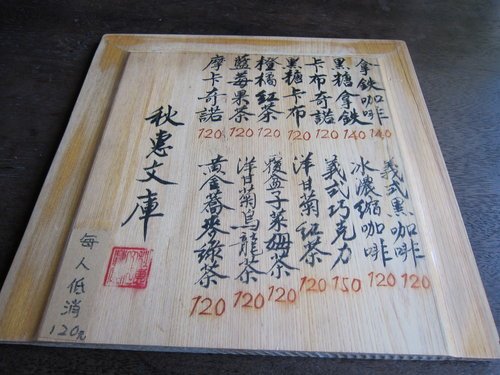 拿鐵咖啡 140
黑糖拿鐵 140
卡布奇諾 120
黑糖卡布 120
橙橘紅茶 120
藍莓果茶 120
摩卡奇諾 120
義式黑咖啡 120
冰濃縮咖啡 120
義式巧克力 150
洋甘菊紅茶 120
覆盆子萊姆茶 120
洋甘菊烏龍茶 120
黃金蕎麥綠茶 120
秋惠文庫
每人低消
120元